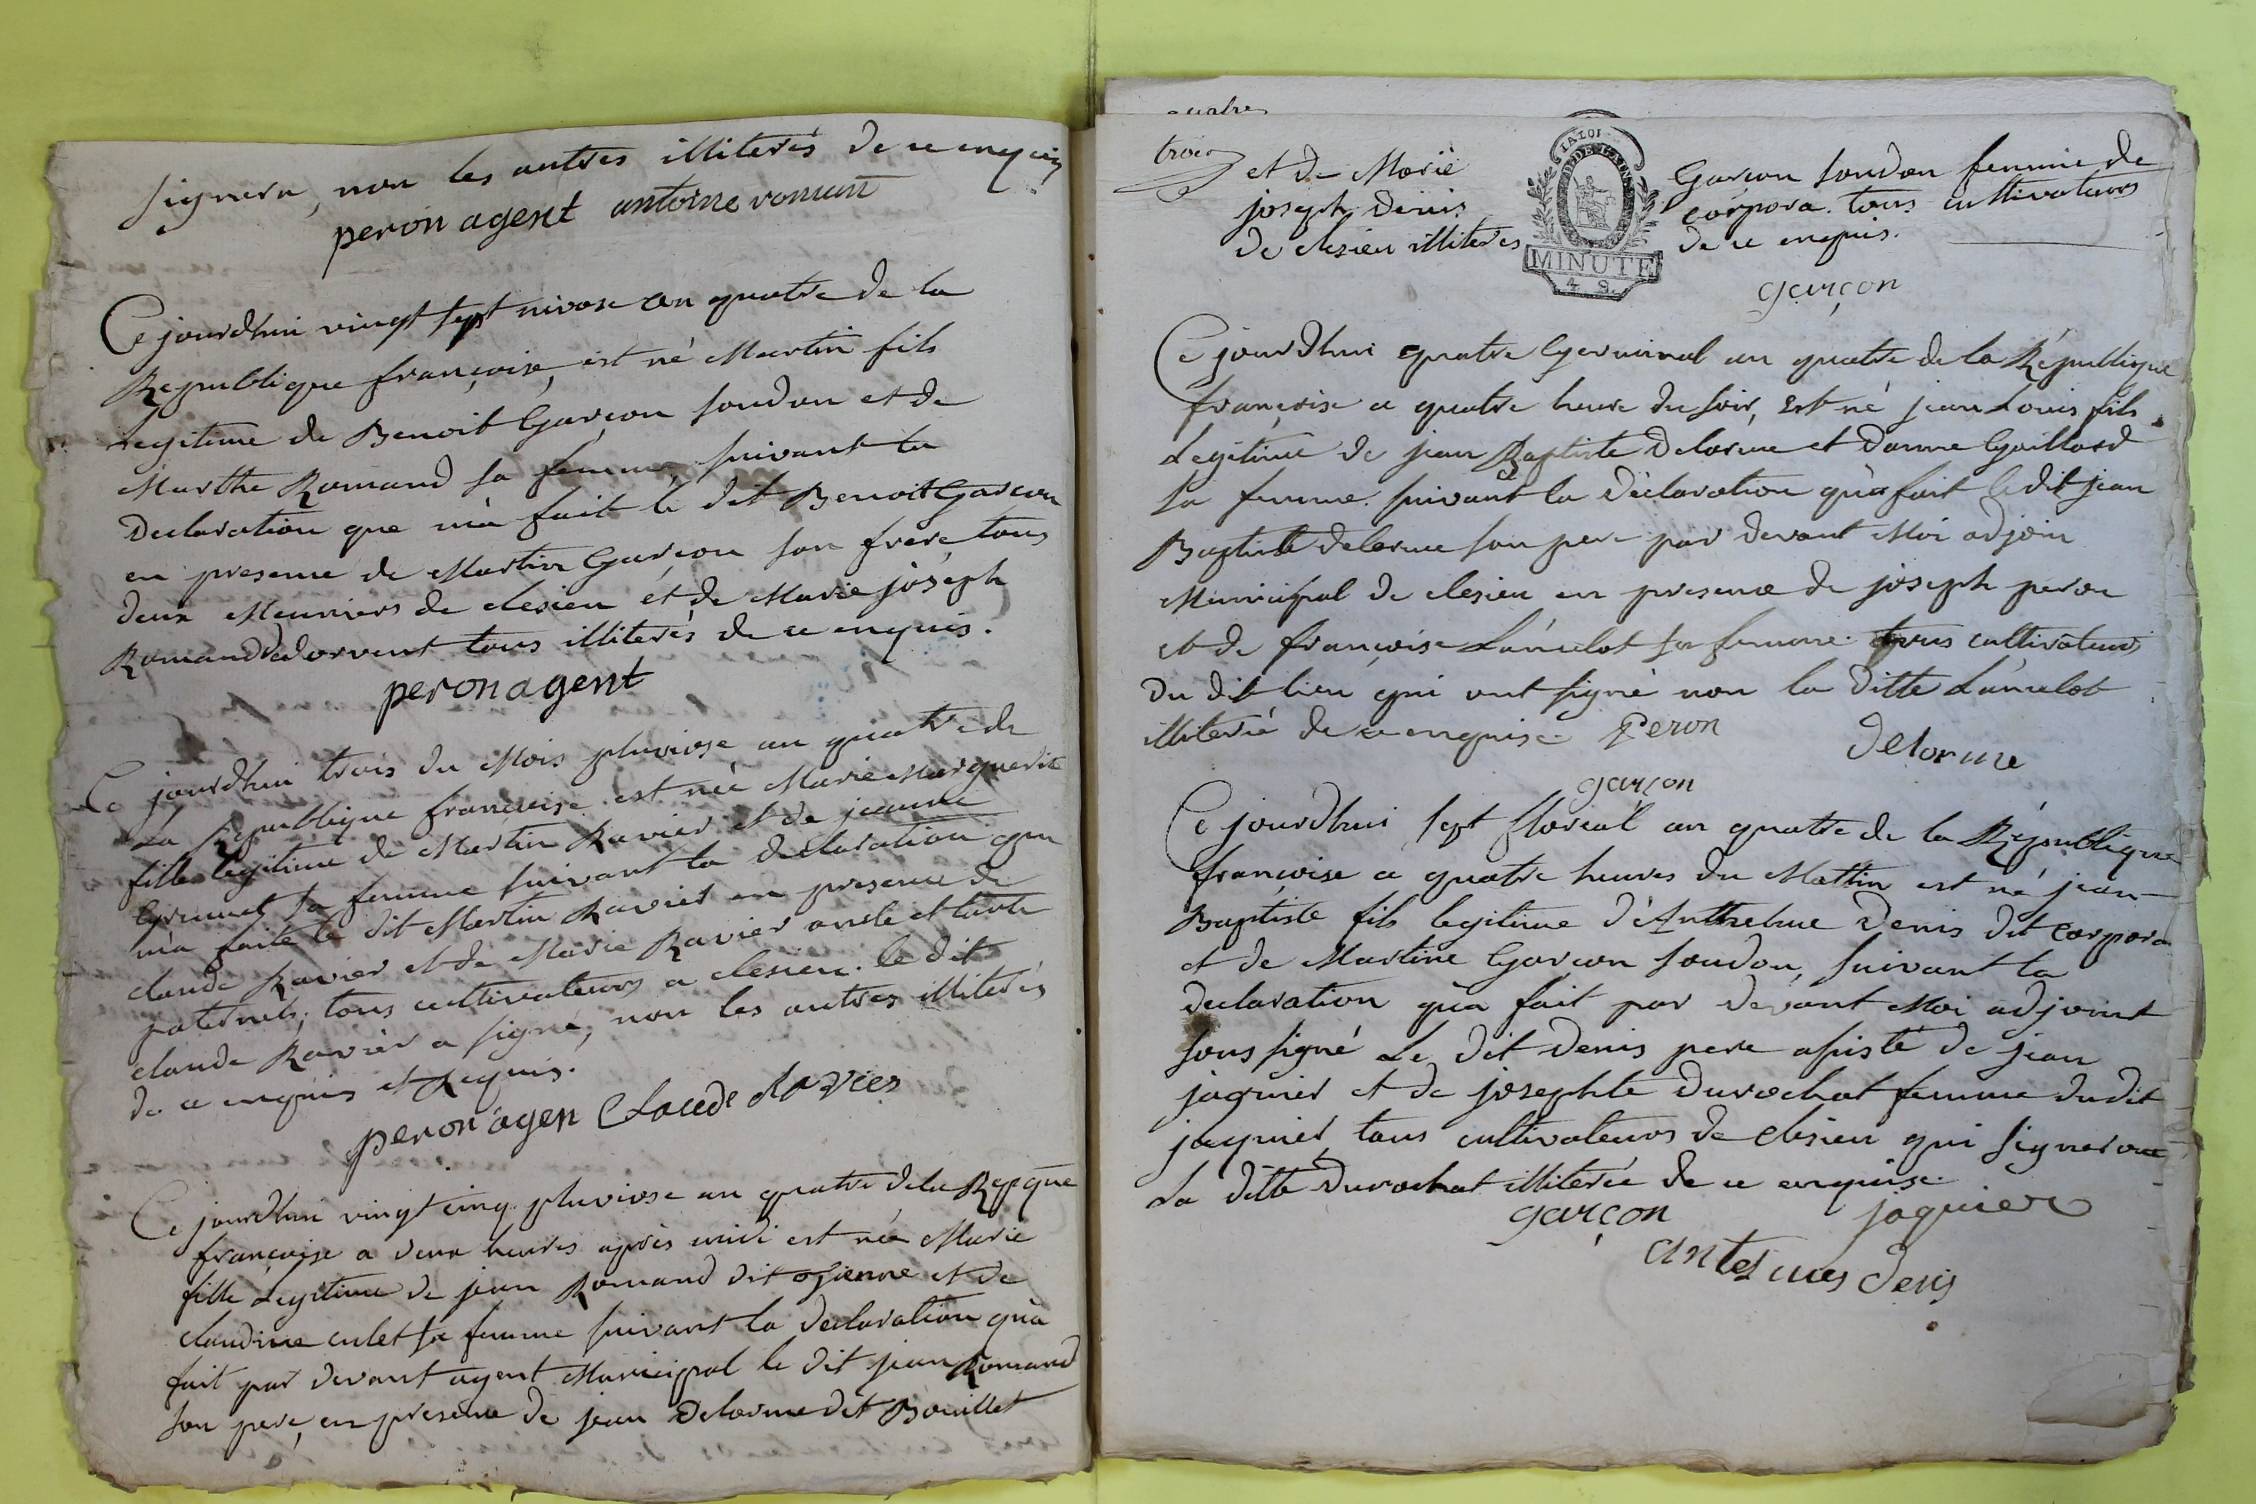 signera, non les autres illiterés de ce enquis
peron agent antoine romant
Ce jourdhui vingt sept nivose an quatre de la
Republique françoise, est né Martin fils
legitime de Benoit Garçon soudon et de
Marthe Romand sa femme, suivant la
Declaration que m'a fait le dit Benoit Garçon
en presence de Martin Garçon son frere tous
deux Meuniers de clesieu et de Marie joseph
Romand tous illiterés de ce enquis.
peron agent
Ce jourdhui trois du Mois pluviose an quatre de
La Republique françoise est née Marie Marguerite
fille legitime de Martin Ravier et de jeanne
sa femme suivant la declaration que
m'a faite le dit Martin Ravier en presence de
claude Ravier et de Marie Ravier oncle et tante
paternels, tous cultivateurs a clesieu. le dit
claude Ravier a signé, non les autres illiterés
de ce enquis et Requis.
peron agen Claude Ravier
Ce jourdhui vingt cinq pluviose an quatre de la Repque
françoise a deux heures après midi est née Marie
fille Legitime de jean Romand dit et de
claudine culet sa femme suivant la declaration qu'a
fait par devant agent Municipal le dit jean Romand
son pere, en presence de jean Delorme dit Bouillet
quatre
trois
et de Marie
joseph Denis
de clesieu illiteres
LA LOI
MINUTE
4 S.
Garçon soudon femme de
corpora. tous cultivateurs
de ce enquis.
garçon
Ce jourdhui quatre Germinal an quatre de la République
françoise a quatre heure du soir, est né jean Louis fils
Legitime de jean Baptiste Delorme et danne Gaillard
sa femme. suivant la Déclaration qu'a fait le dit jean
Baptiste delorme son pere par devant Moi adjoin
Municipal de clesieu en presence de joseph peron
et de françoise Lancelot sa femme. tous cultivateurs
du dit lieu qui ont signé non la ditte Lancelot
illiterée de ce enquise. Peron
Delorme
garçon
Ce jourdhui sept floreal an quatre de la République
françoise a quatre heures du Mattin est né jean
Baptiste fils legitime d'Anthelme Denis dit corpora
et de Martine Garçon soudon, suivant la
declaration qu'a fait par devant Moi adjoint
sous signé Le dit Denis pere asisté de jean
jaquier et de josephte Durochat femme du dit
jaquier, tous cultivateurs de clesieu qui signeron
La ditte Durochat illiterée de ce enquise.
garçon jaquier
Denis